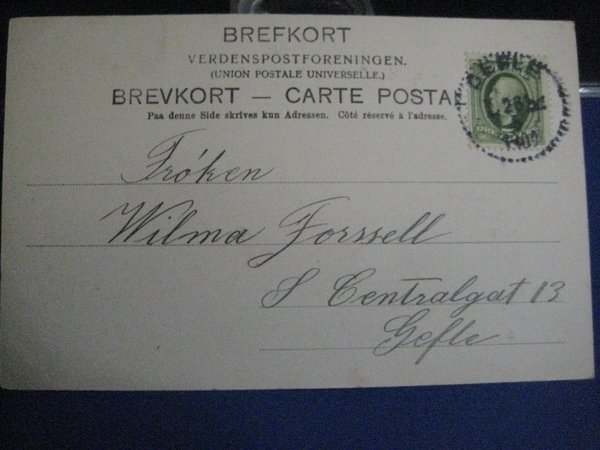 BREFKORT
VERDENSPOSTFORENINGEN.
(UNION POSTALE UNIVERSELLE.)
BREVKORT — CARTE POSTA
Paa denne Side skrives kun Adressen. Côté réservé à l'adresse.
GEFLE
ÖRE
Fröken
Wilma Forssell
S Centralgat 13
Gefle